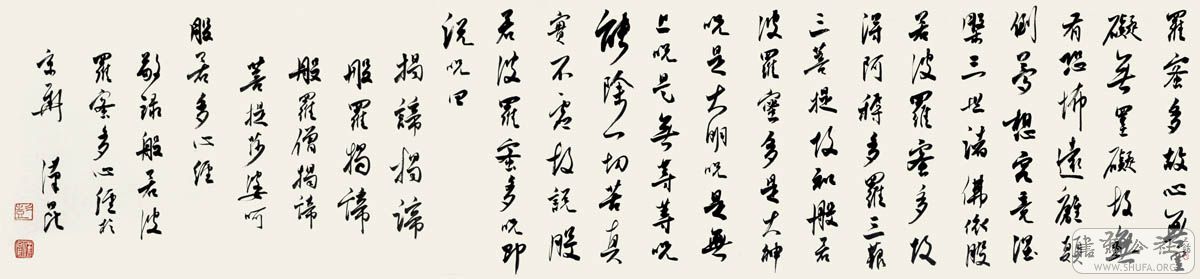 羅蜜多故心無罣
礙無罣礙故無
有恐怖遠離顛
倒夢想究竟涅
槃三世諸佛依般
若波羅蜜多故
得阿耨多羅三藐
三菩提故知般若
波羅蜜多是大神
呪是大明呪是無
上呪是無等等呪
能除一切苦真
實不虛故說般
若波羅蜜多呪即
說呪曰
揭諦揭諦
般羅揭諦
般羅僧揭諦
菩提莎婆呵
般若多心經
敬録般若波
羅蜜多心經於
京華 漢昆